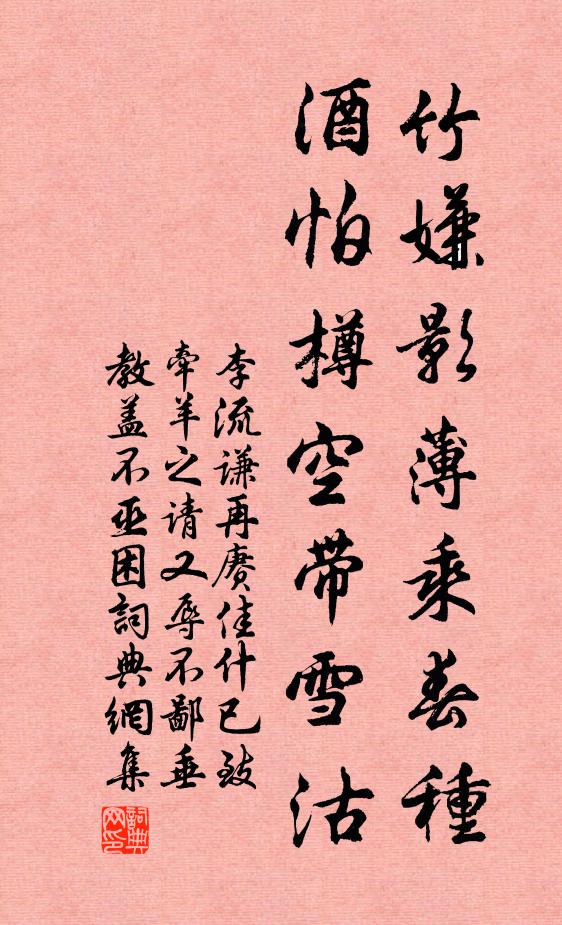 竹嫌影薄乘春種
酒怕樽空带雪沽
李流谦再赓佳什已致
牵羊之请又辱不鄙垂
教盖不亟困詞典網集
詞典网印